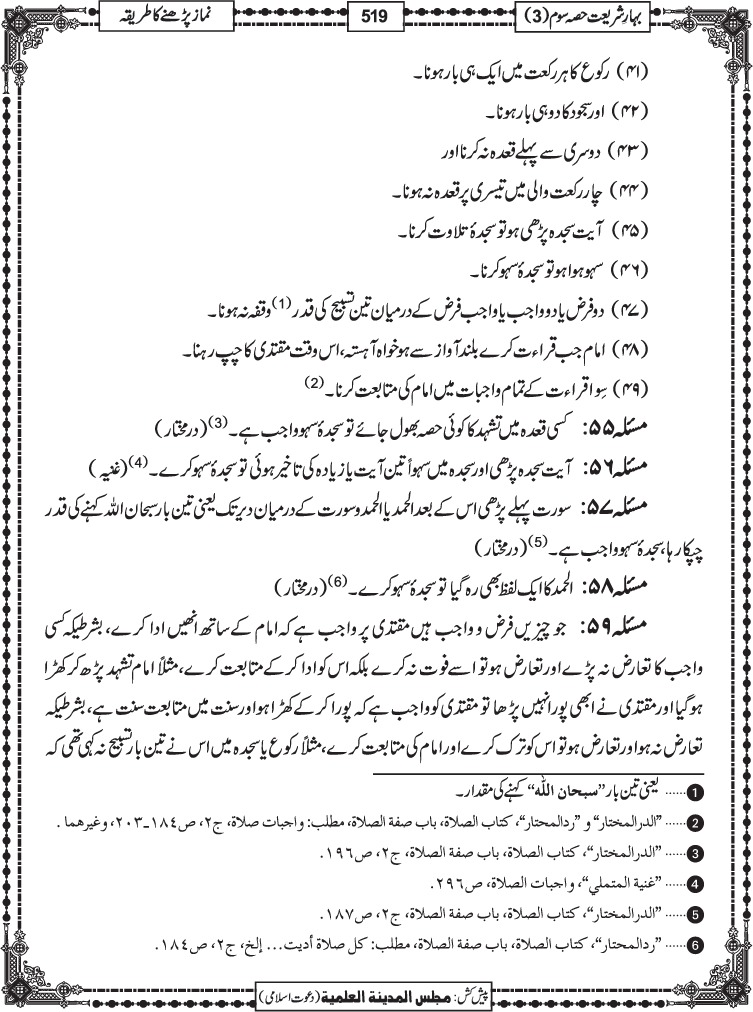 بہارِ شریعت حصہ سوم (3)
519
نماز پڑھنے کا طریقہ
(۴۱) رکوع کا ہر رکعت میں ایک ہی بار ہونا۔
(۴۲) اور سجود کا دو ہی بار ہونا۔
(۴۳) دوسری سے پہلے قعدہ نہ کرنا اور
(۴۴) چار رکعت والی میں تیسری پر قعدہ نہ ہونا۔
(۴۵) آیت سجدہ پڑھی ہو تو سجدۂ تلاوت کرنا۔
(۴۶) سہو ہوا ہو تو سجدۂ سہو کرنا۔
(۴۷) دو فرض یا دو واجب یا واجب فرض کے درمیان تین تسبیح کی قدر (1) وقفہ نہ ہونا۔
(۴۸) امام جب قراءت کرے بلند آواز سے ہو خواہ آہستہ، اس وقت مقتدی کا چپ رہنا۔
(۴۹) سِوا قراءت کے تمام واجبات میں امام کی متابعت کرنا۔ (2)
مسئلہ ۵۵: کسی قعدہ میں تشہد کا کوئی حصہ بھول جائے تو سجدۂ سہو واجب ہے۔ (3) (درمختار)
مسئلہ ۵۶: آیت سجدہ پڑھی اور سجدہ میں سہواً تین آیت یا زیادہ کی تاخیر ہوئی تو سجدۂ سہو کرے۔ (4) (غنیہ)
مسئلہ ۵۷: سورت پہلے پڑھی اس کے بعد الحمد یا الحمد و سورت کے درمیان دیر تک یعنی تین بار سبحان اللہ کہنے کی قدر
چپکا رہا، سجدۂ سہو واجب ہے۔ (5) (درمختار)
مسئلہ ۵۸: الحمد کا ایک لفظ بھی رہ گیا تو سجدۂ سہو کرے۔ (6) (درمختار)
مسئلہ ۵۹: جو چیزیں فرض و واجب ہیں مقتدی پر واجب ہے کہ امام کے ساتھ انھیں ادا کرے، بشرطیکہ کسی
واجب کا تعارض نہ پڑے اور تعارض ہو تو اسے فوت نہ کرے بلکہ اس کو ادا کر کے متابعت کرے، مثلاً امام تشہد پڑھ کر کھڑا
ہو گیا اور مقتدی نے ابھی پورا نہیں پڑھا تو مقتدی کو واجب ہے کہ پورا کر کے کھڑا ہو اور سنت میں متابعت سنت ہے، بشرطیکہ
تعارض نہ ہو اور تعارض ہو تو اس کو ترک کرے اور امام کی متابعت کرے، مثلاً رکوع یا سجدہ میں اس نے تین بار تسبیح نہ کہی تھی کہ
1 ...... یعنی تین بار ”سبحان اللّٰہ“ کہنے کی مقدار۔
2 ...... ”الدرالمختار“ و ”ردالمحتار“، کتاب الصلاة، باب صفة الصلاة، مطلب: واجبات صلاة، ج۲، ص۱۸٤-۲۰۳، وغیرهما .
3 ...... ”الدرالمختار“، کتاب الصلاة، باب صفة الصلاة، ج۲، ص۱۹٦.
4 ...... ”غنیة المتملي“، واجبات الصلاة، ص۲۹٦.
5 ...... ”الدرالمختار“، کتاب الصلاة، باب صفة الصلاة، ج۲، ص۱۸۷.
6 ...... ”ردالمحتار“، کتاب الصلاة، باب صفة الصلاة، مطلب: کل صلاة أدیت... إلخ، ج۲، ص۱۸٤.
پیش کش: مجلس المدینة العلمیة (دعوت اسلامی)